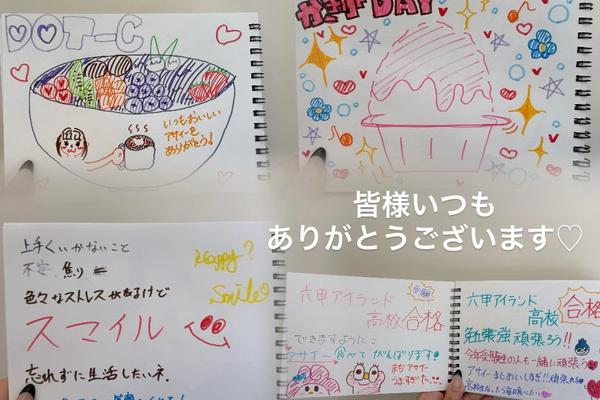 DOT-C
いつもおいしい
アサイーを
ありがとう!
かき氷DAY
皆様いつも
ありがとうございます♡
上手くいかないこと
不安 焦り
色々なストレスがあるけど
スマイル
忘れずに生活したいネ.
Happy?
Smile
受験
六甲アイランド
高校合格
できますように
アサイー食べてがんばります!
まぢアサイー
うますぎた
六甲アイランド
高校 合格
勉強頑張ろう!!
今年受験生の人も一緒に頑張ろ
アサイーまじおいしすぎ!!頑張れる